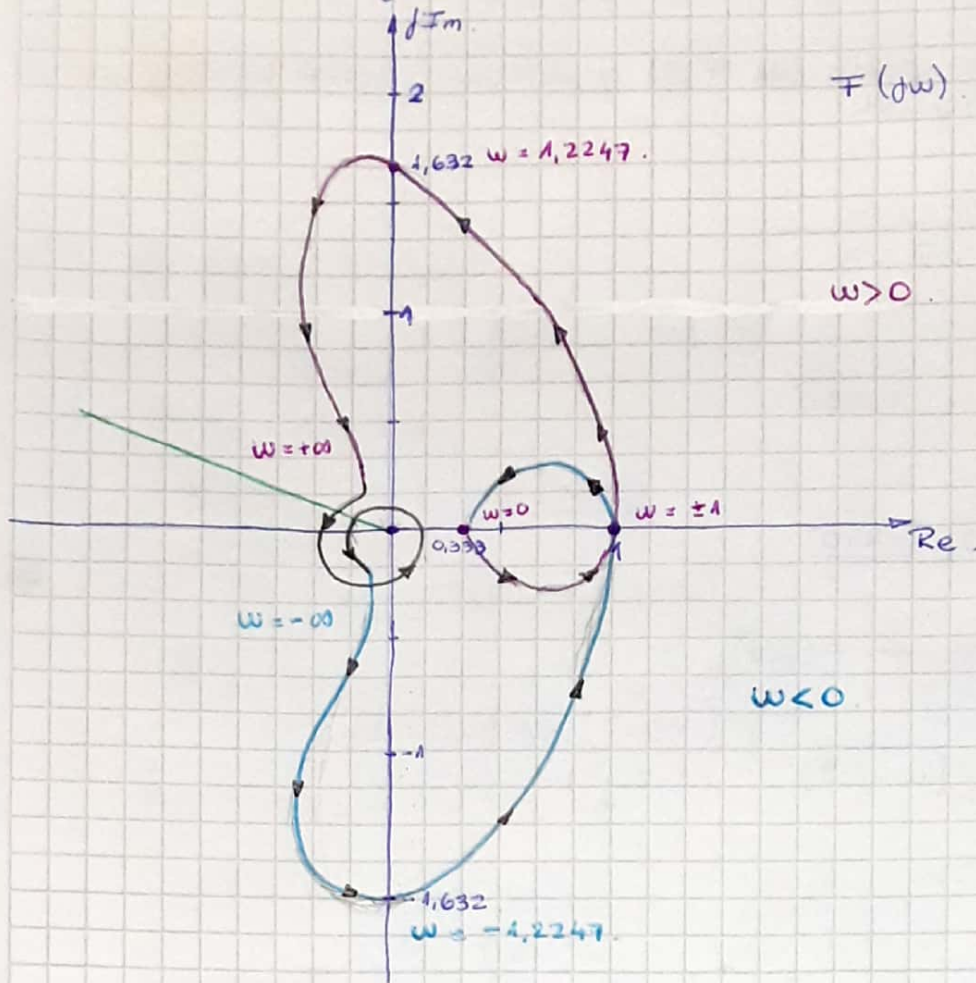 jIm.
2
F(jω)
1,632 ω = 1,2247.
ω>0.
1
ω=+∞
ω=0
ω = ±1
0,333
1
Re.
ω=-∞
ω<0
-1
-1,632
ω = -1,2247.